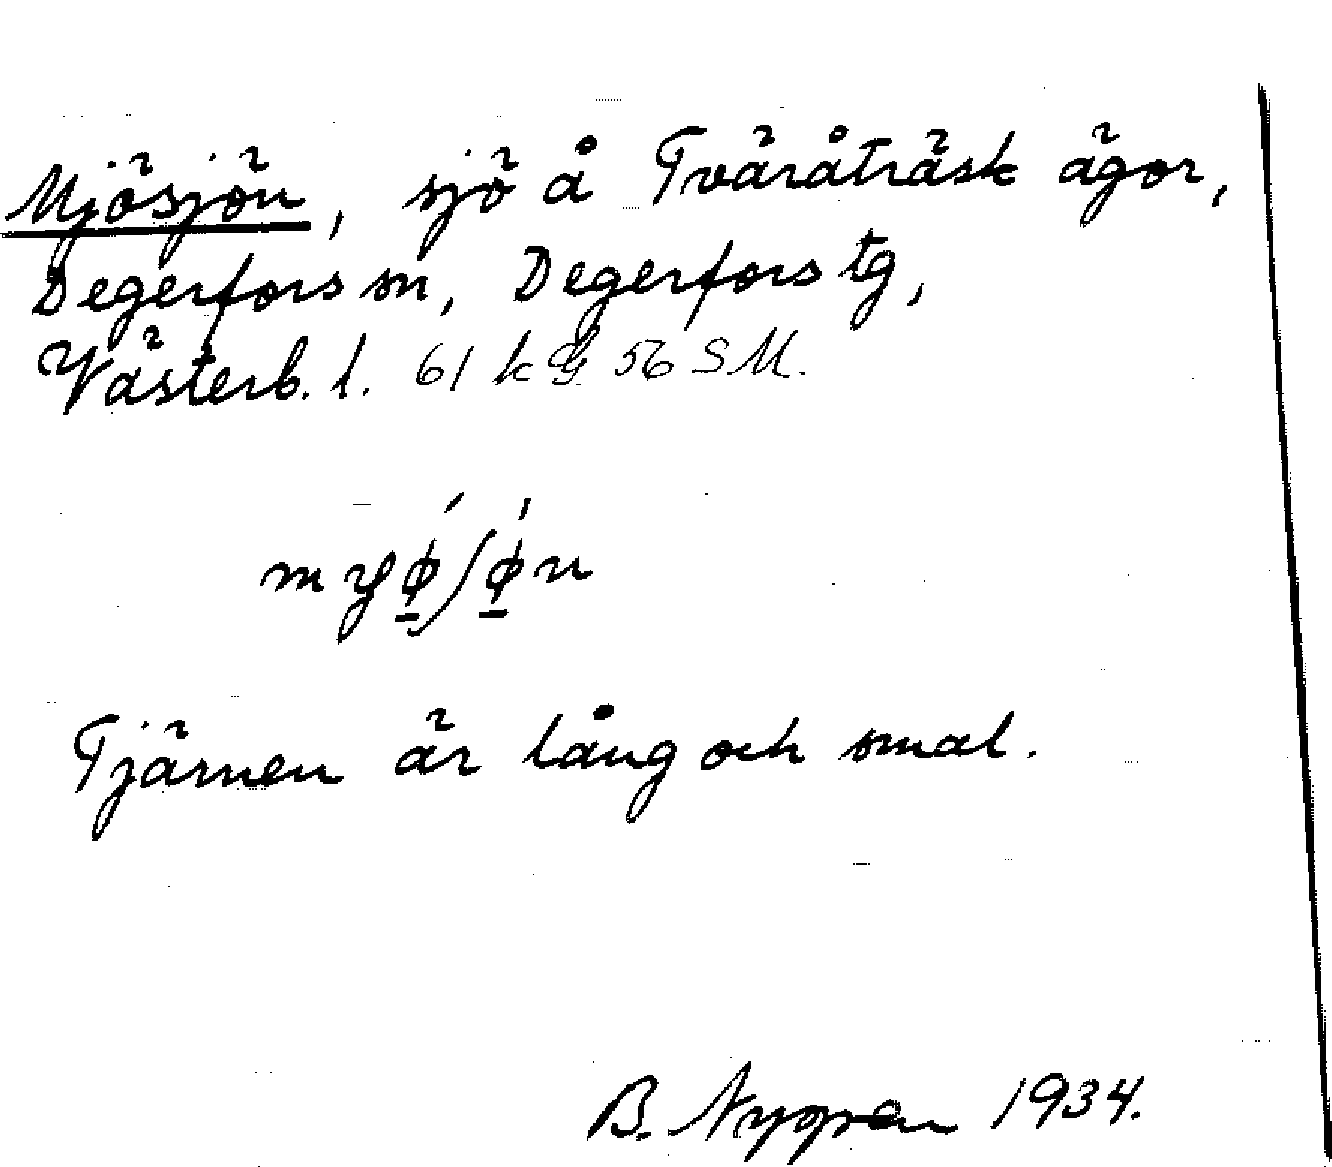 Mjösjön, sjö å Tväråträsk ägor,
Degerfors sn, Degerfors tg,
Västerb. l. 61 k 56 SM.
Tjärnen är lång och smal.
B. Nygren 1934.